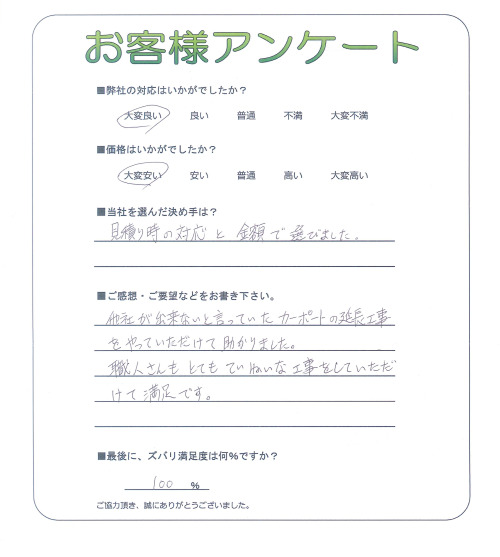 お客様アンケート
■弊社の対応はいかがでしたか？
大変良い 良い 普通 不満 大変不満
■価格はいかがでしたか？
大変安い 安い 普通 高い 大変高い
■当社を選んだ決め手は？
見積り時の対応と金額で選びました。
■ご感想・ご要望などをお書き下さい。
他社が出来ないと言っていたカーポートの延長工事
をやっていただけて助かりました。
職人さんもとてもていねいな工事をしていただ
けて満足です。
■最後に、ズバリ満足度は何％ですか？
100 %
ご協力頂き、誠にありがとうございました。